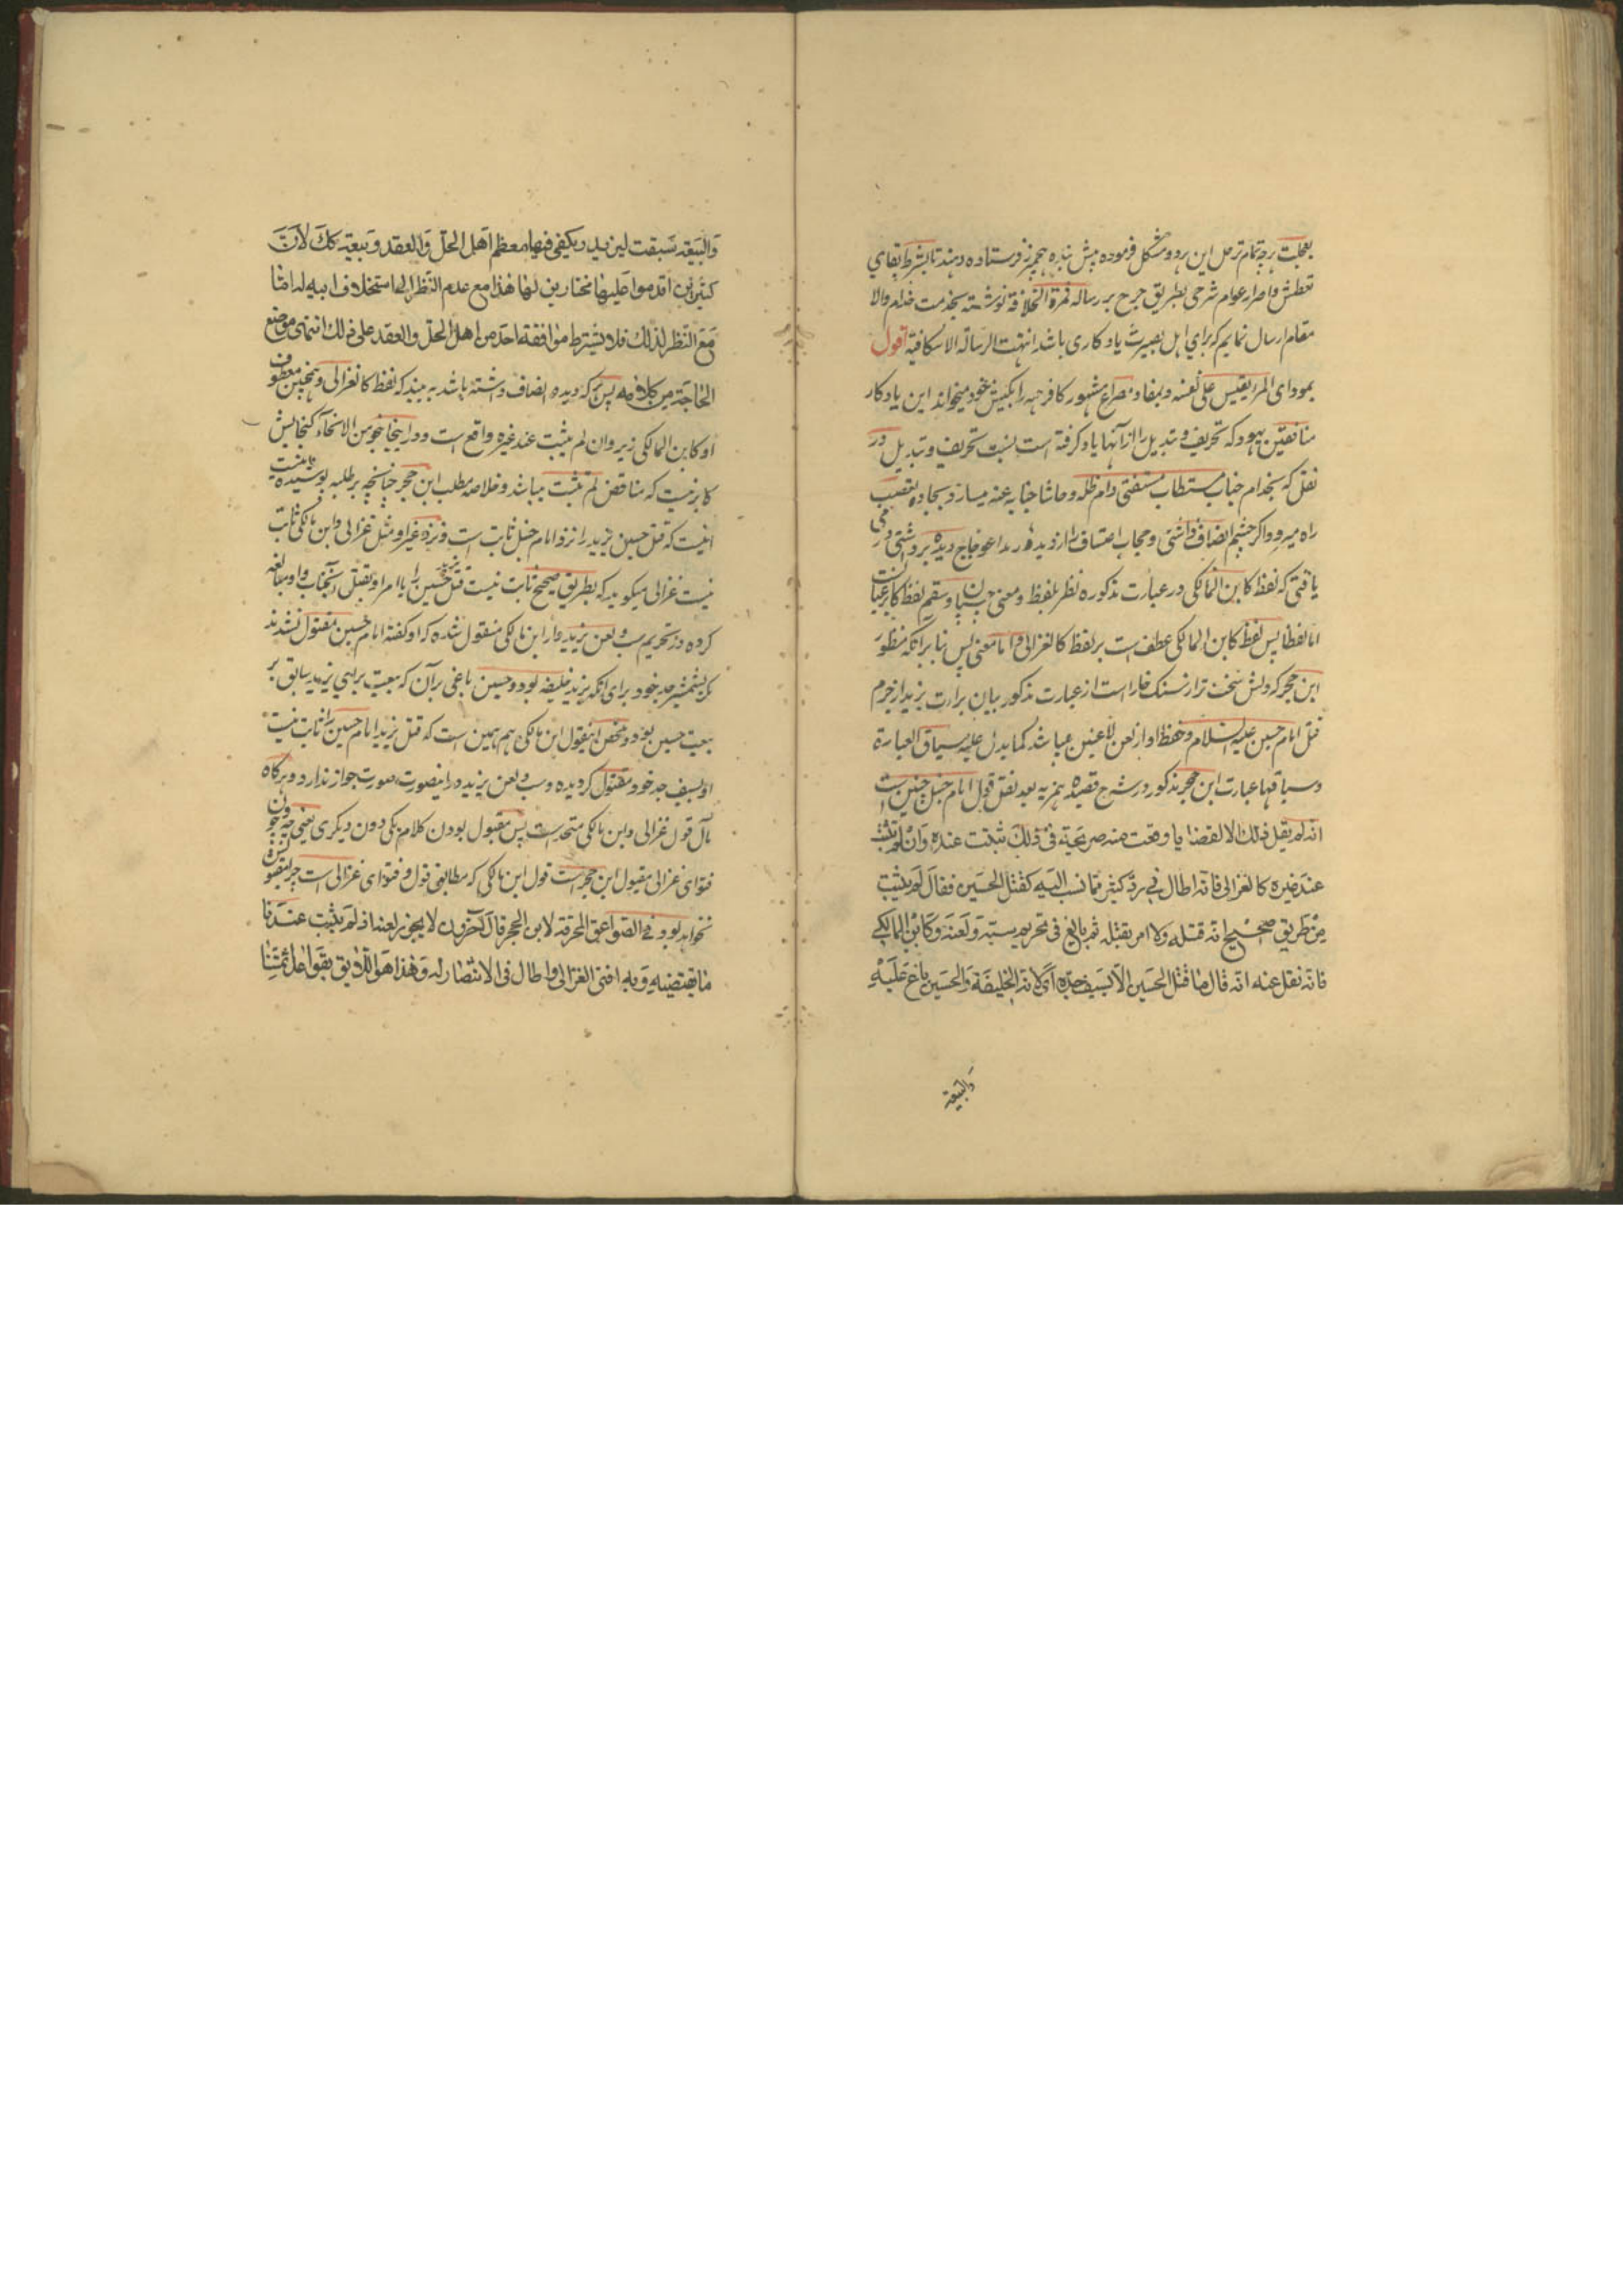 بعجلت هرچه تمام تر حل این هر دو مشکل فرموده پیش بنده هیچمرز فرستاده دهند تا بشرط بقای
تعطش و اصرار عوام شرحی بطریق جرح بر رساله ثمرة الخلافة نوشته بخدمت خدام والا
مقام ارسال نمایم که برای اهل بصیرت یادکاری باشد انتهت الرسالة الاسکافیة اقول
بمودای المرء یقیس علی نفسه و بمفاد مصراع مشهور کافر همه را بکیش خود میخواند این یادکار
منافقین یهود که تحریف و تبدیل را از آنها یاد کرفته است نسبت تحریف و تبدیل در
نقل که بخدام جناب مستطاب مستفتی دام ظله و حاشا جنابه عنه میسازد و بجاده تعصب
راه میرود و اکر چشم انصاف داشتی و حجاب اعتساف را از دیده رمد اعوجاج دیده برداشتی در می
یافتی که لفظ کابن المالکی در عبارت مذکوره نظر بلفظ و معنی چسبان و سقیم لفظ کابر عبارتست
اما لفظا پس لفظ کابن المالکی عطف است بر لفظ کالغزالی و اما معنی پس بنا بر آنکه منظور
ابن حجر که دلش سخت تر از سنک خاراست از عبارت مذکور بیان برارت یزید از جرم
قتل امام حسین علیه السلام و حفظ او از لعن لاعنین میباشد کما یدل علیه سیاق العبارة
و سباقها عبارت ابن حجر مذکور در شرح قصیده همزیه بعد نقل قول امام حنبل چنین است
انه لم یقل ذلک الا لقضایا وقعت منه صریحة فی ذلک ثبتت عنده وان لم تثبت
عند غیره کالغزالی فانه اطال فی رد کثیر مما نسب الیه کقتل الحسین فقال لم یثبت
من طریق صحیح انه قتله ولا امر بقتله ثم بالغ فی تحریم سبه ولعنه وکابن المالکی
فانه نقل عنه انه قال ما قتل الحسین الا بسیف جده ای لانه الخلیفة والحسین باغ علیه
والبیعة
والبیعة سبقت لیزید ویکفی فیها معظم اهل الحل والعقد وبیعته کک لان
کثیرین اقدموا علیها مختارین لها هذا مع عدم النظر الی استخلاف ابیه له اما
مع النظر لذلک فلا تشترط موافقة احد من اهل الحل والعقد علی ذلک انتهی موضع
الحاجة من کلامه پس هر که دیده انصاف داشته باشد به بیند که لفظ کالغزالی و همچنین معطوف
او کابن المالکی زیر وان لم یثبت عند غیره واقع است و در اینجا بنحو من الانحاء کنجایش
کابر نیست که مناقض لم تثبت میباشد و خلاصه مطلب ابن حجر چنانچه بر طلبه پوشیده نیست
اینست که قتل حسین یزید را نزد امام حنبل ثابت است و نزد غیر او مثل غزالی و ابن مالکی ثابت
نیست غزالی میکوید که بطریق صحیح ثابت نیست قتل یزید حسین را یا امر او بقتل آنجناب و او مبالغه
کرده در تحریم سب و لعن یزید و از ابن مالکی منقول شده که او کفته امام حسین مقتول نشدند
مکر بشمشیر جد خود برای آنکه یزید خلیفه بود و حسین باغی بر آن که بیعت برای یزید سابق بر
بیعت حسین بود و محصل این قول ابن مالکی هم همین است که قتل یزید امام حسین را ثابت نیست
او بسیف جد خود مقتول کردیده و سب و لعن یزید در اینصورت صورت جواز ندارد و هرکاه
مآل قول غزالی و ابن مالکی متحد است پس مقبول بودن کلام یکی دون دیکری یعنی چه و چون
فتوای غزالی مقبول ابن حجر است قول ابن مالکی که مطابق قول و فتوای غزالی است چرا مقبول
نخواهد بود و فی الصواعق المحرقة لابن الحجر قال آخرون لا یجوز لعنه اذ لم یثبت عندنا
ما یقتضیه وبه افتی الغزالی واطال فی الانتصار له وهذا هو اللایق بقواعد ائمتنا